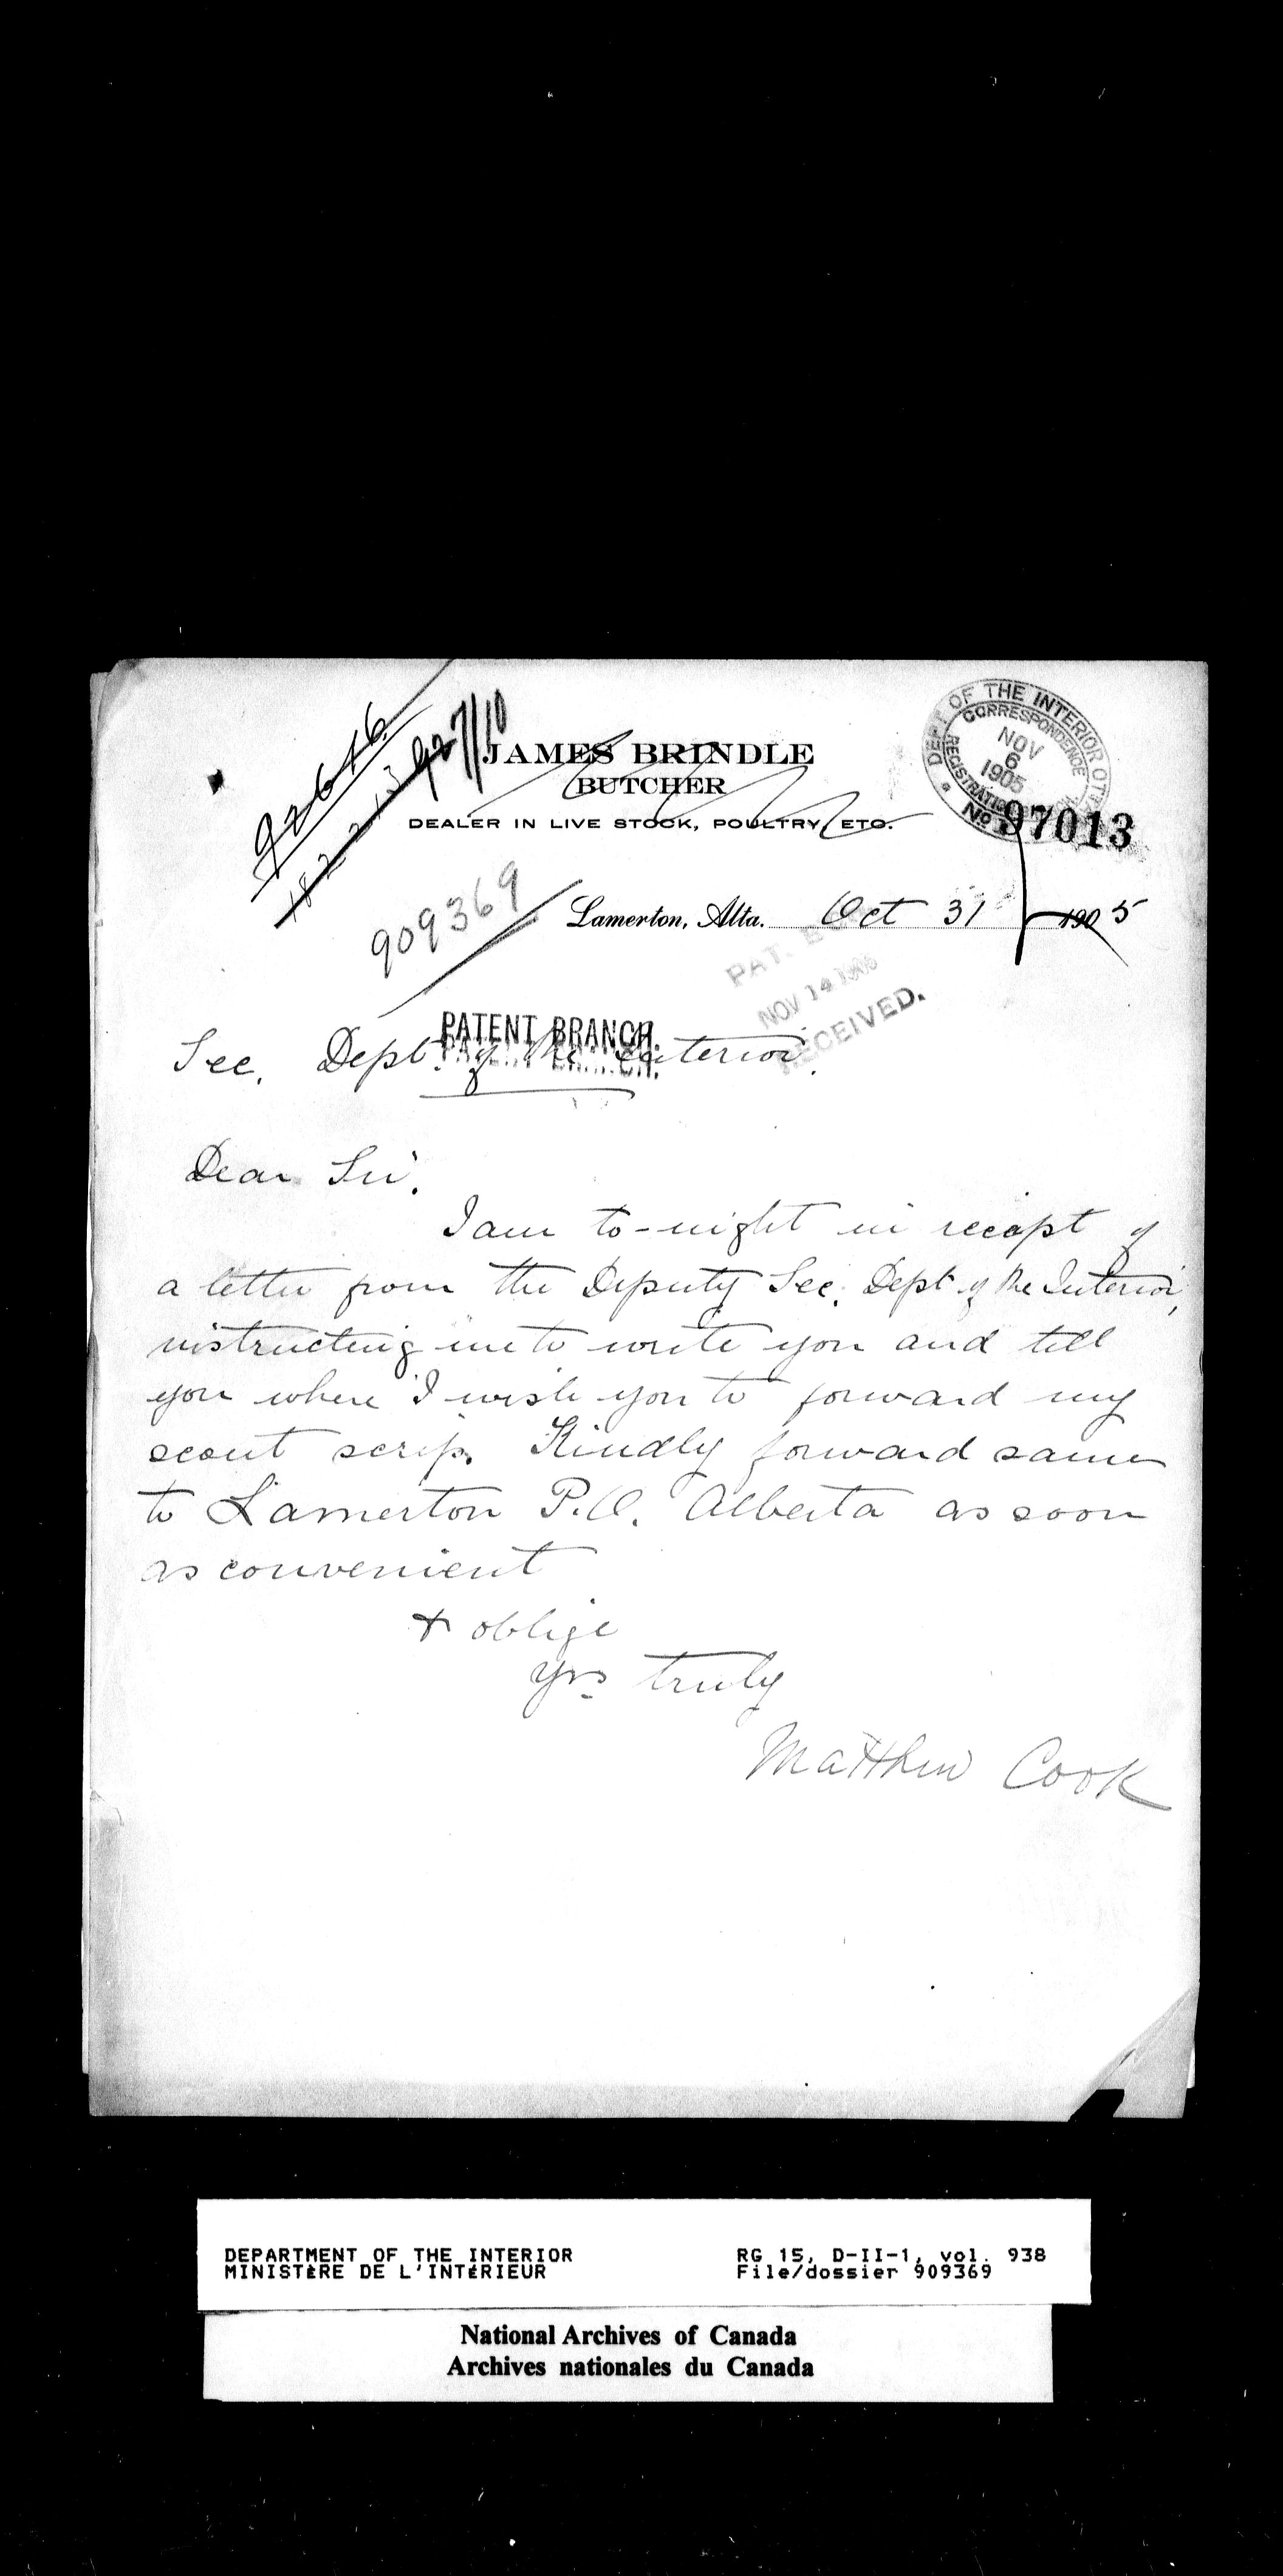 92616
182213 927/10
JAMES BRINDLE
BUTCHER
DEALER IN LIVE STOCK, POULTRY, ETC.
DEPT OF THE INTERIOR
CORRESPONDENCE
NOV
6
1905
REGISTRATION
No 97013
909369
Lamerton, Alta. Oct 31 1905
PAT.
NOV 14 1905
RECEIVED.
PATENT BRANCH.
PATENT BRANCH.
Sec. Dept. of the Interior.
Dear Sir.
I am to-night in recipt of
a letter from the Deputy Sec. Dept of the Interior,
instructing me to write you and tell
you where I wish you to forward my
scout scrip. Kindly forward same
to Lamerton P.O. Alberta as soon
as convenient
& oblige
yrs truly
Matthew Cook
DEPARTMENT OF THE INTERIOR
MINISTÈRE DE L'INTÉRIEUR
RG 15, D-II-1, vol. 938
File/dossier 909369
National Archives of Canada
Archives nationales du Canada